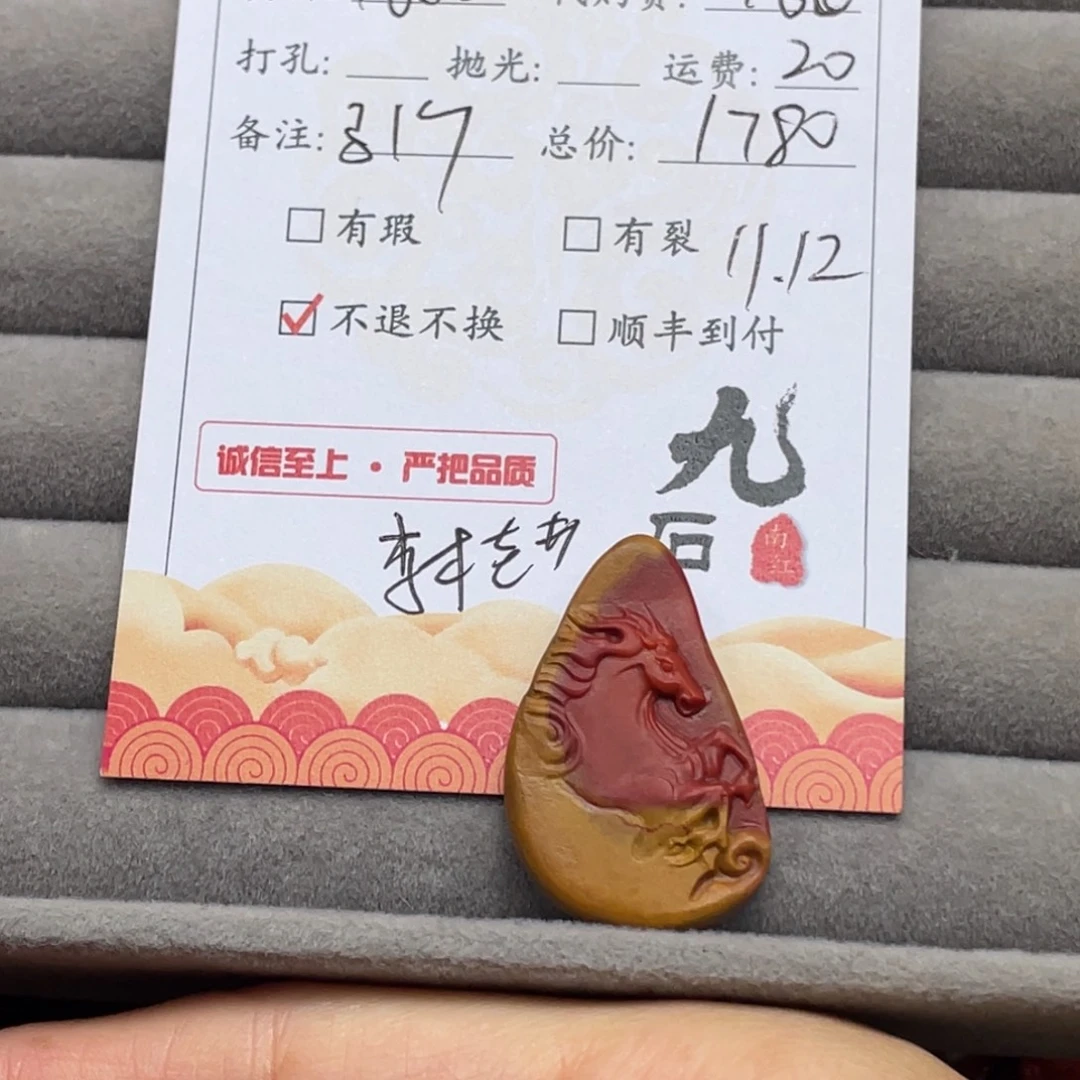 打孔: 抛光: 运费: 20
备注: 817 总价: 1780
有瑕 有裂 11.12
不退不换 顺丰到付
诚信至上 · 严把品质
九
石
南红